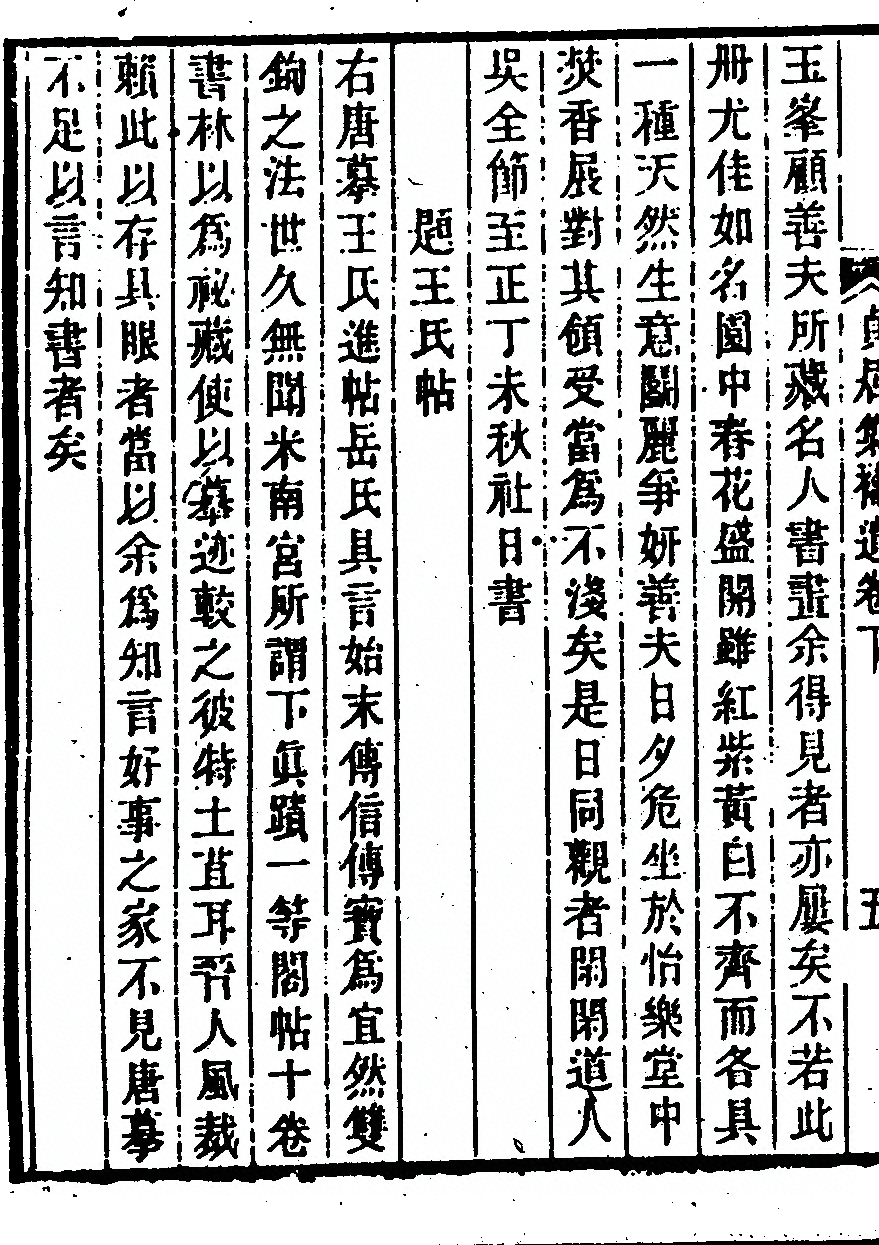 貞居集補遺卷下 五
玉峯顧善夫所藏名人書畫余得見者亦屢矣不若此
册尤佳如名園中春花盛開雖紅紫黃白不齊而各具
一種天然生意鬬麗爭妍善夫日夕危坐於怡樂堂中
焚香展對其領受當爲不淺矣是日同觀者閑閑道人
吳全節至正丁未秋社日書
題王氏帖
右唐摹王氏進帖岳氏具言始末傳信傳寶爲宜然雙
鉤之法世久無聞米南宮所謂下眞蹟一等閣帖十卷
書林以爲祕藏使以摹迹較之彼特土苴耳晉人風裁
賴此以存具眼者當以余爲知言好事之家不見唐摹
不足以言知書者矣